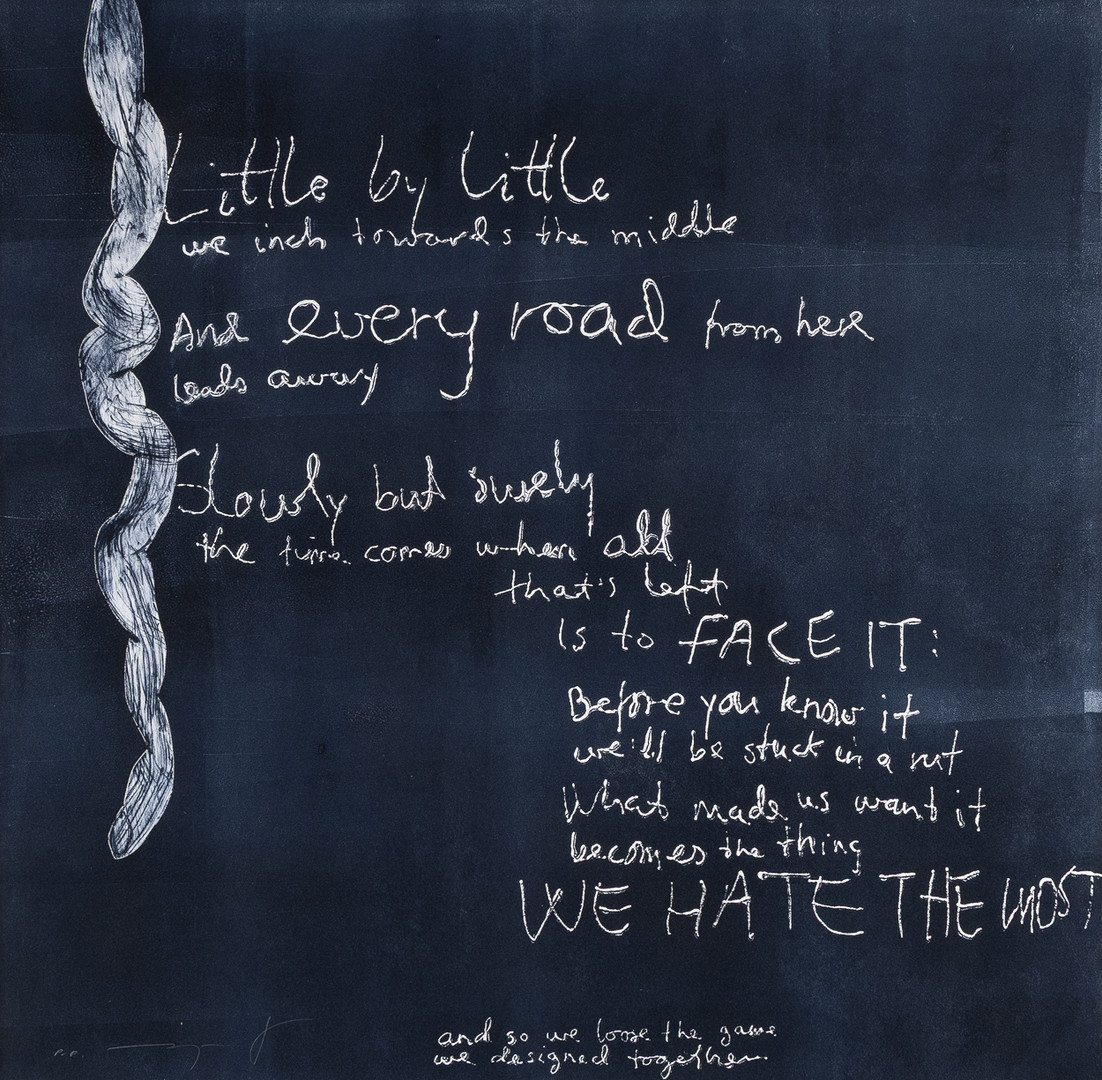 Little by little
we inch towards the middle
And every road from here
leads away
Slowly but surely
the time comes when all
that's left
Is to FACE IT:
Before you know it
we'll be stuck in a rut
What made us want it
becomes the thing
WE HATE THE MOST
and so we loose the game
we designed together